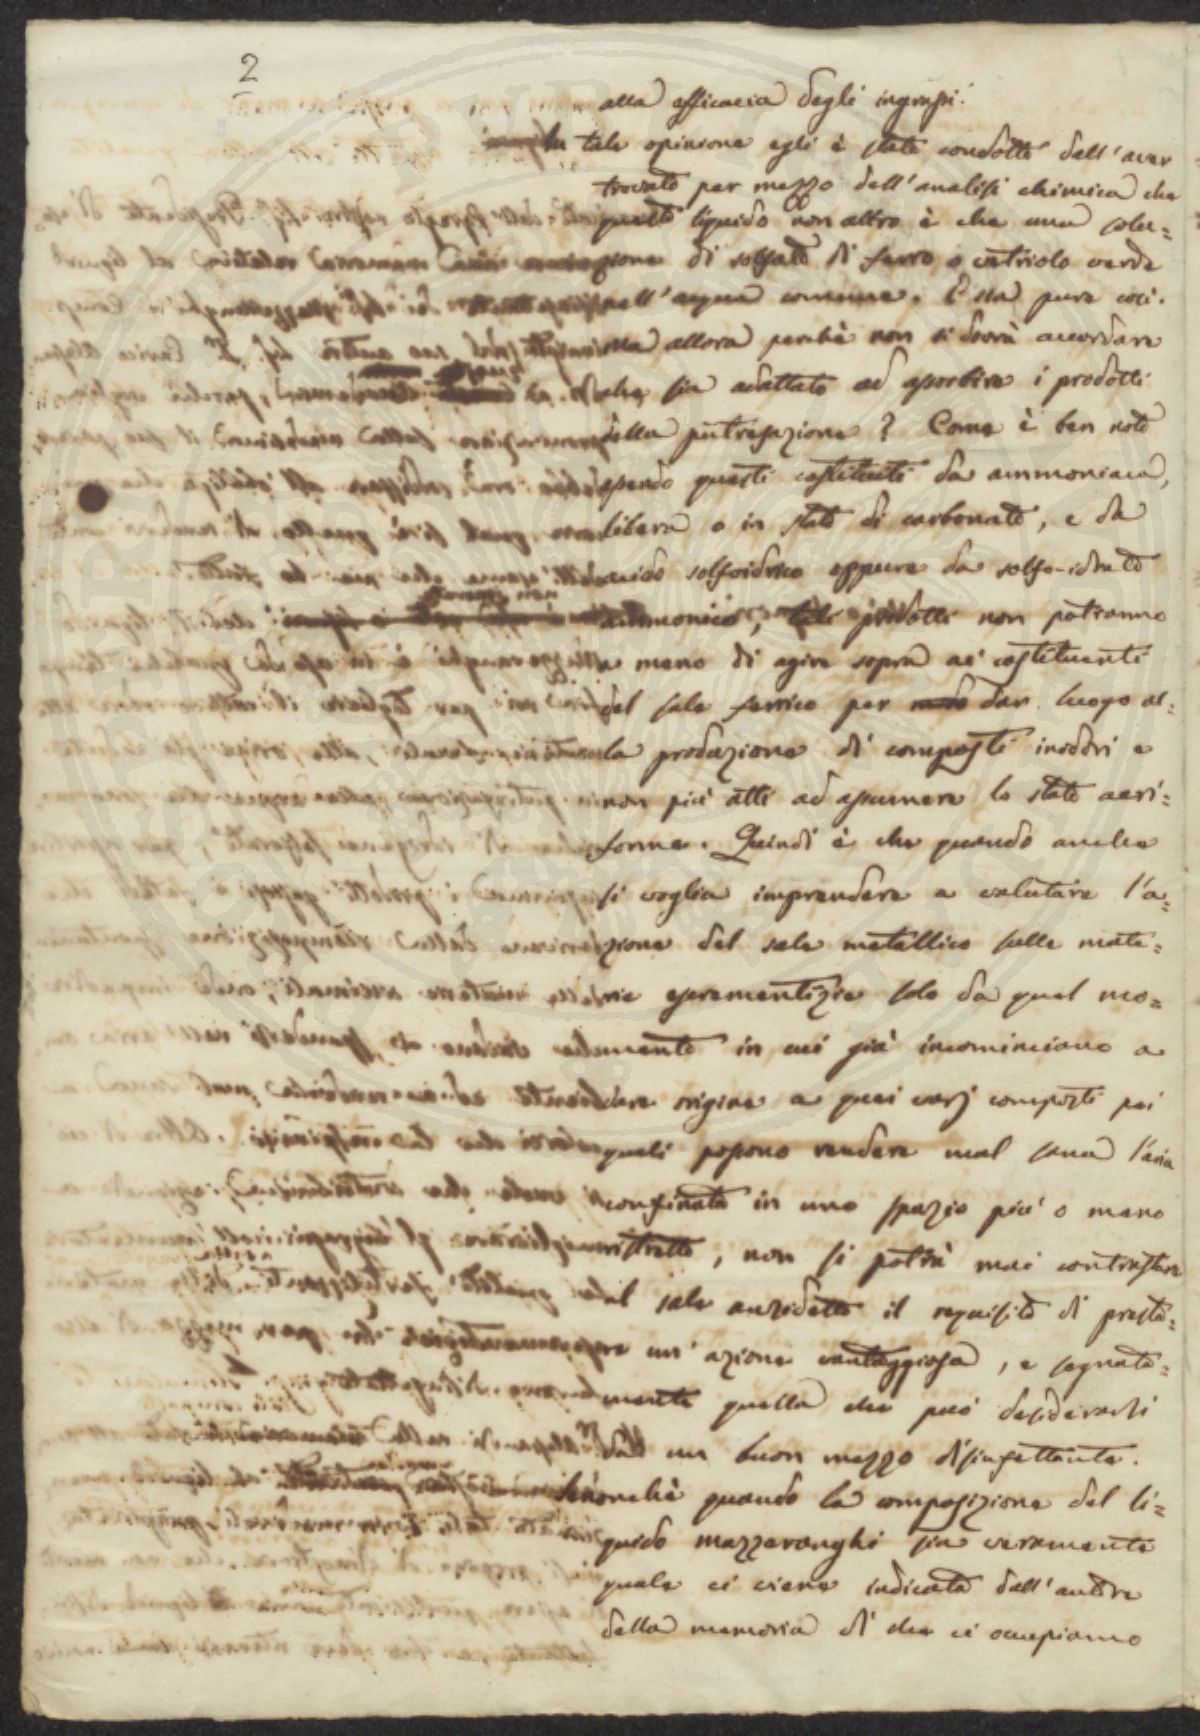 2
alla efficacia degli ingrassi.
In tale opinione egli è stato condotto dall'aver
trovato per mezzo dell'analisi chimica che
questo liquido non altro è che una solu=
zione di solfato di ferro o vetriolo verde
nell'acqua comune. E sta pure così.
ma allora perchè non si dovrà accordare
che sia adattato ad assorbire i prodotti
della putrefazione? Come è ben noto
essendo questi costituiti da ammoniaca,
libera o in stato di carbonato, e da
acido solfoidrico oppure da solfo-idrato
ammonico, tali prodotti non potranno
a meno di agire sopra ai costituenti
del sale ferrico per dar luogo al=
la produzione di composti inodori e
non più atti ad assumere lo stato aeri=
forme. Quindi è che quando anche
si voglia imprendere a valutare l'a=
zione del sale metallico sulle mate=
rie escrementizie solo da quel mo=
mento in cui già incominciano a
dare origine a quei varj composti pei
quali possono rendere mal sana l'aria
confinata in uno spazio più o meno
ristretto, non si potrà mai contrastare
al sale anzidetto il requisito di presta=
re un'azione vantaggiosa, e segnata=
mente quella che può desiderarsi
da un buon mezzo disinfettante.
Senonchè quando la composizione del li=
quido mazzeranghi sia veramente
quale ci viene indicata dall'autore
della memoria di che ci occupiamo